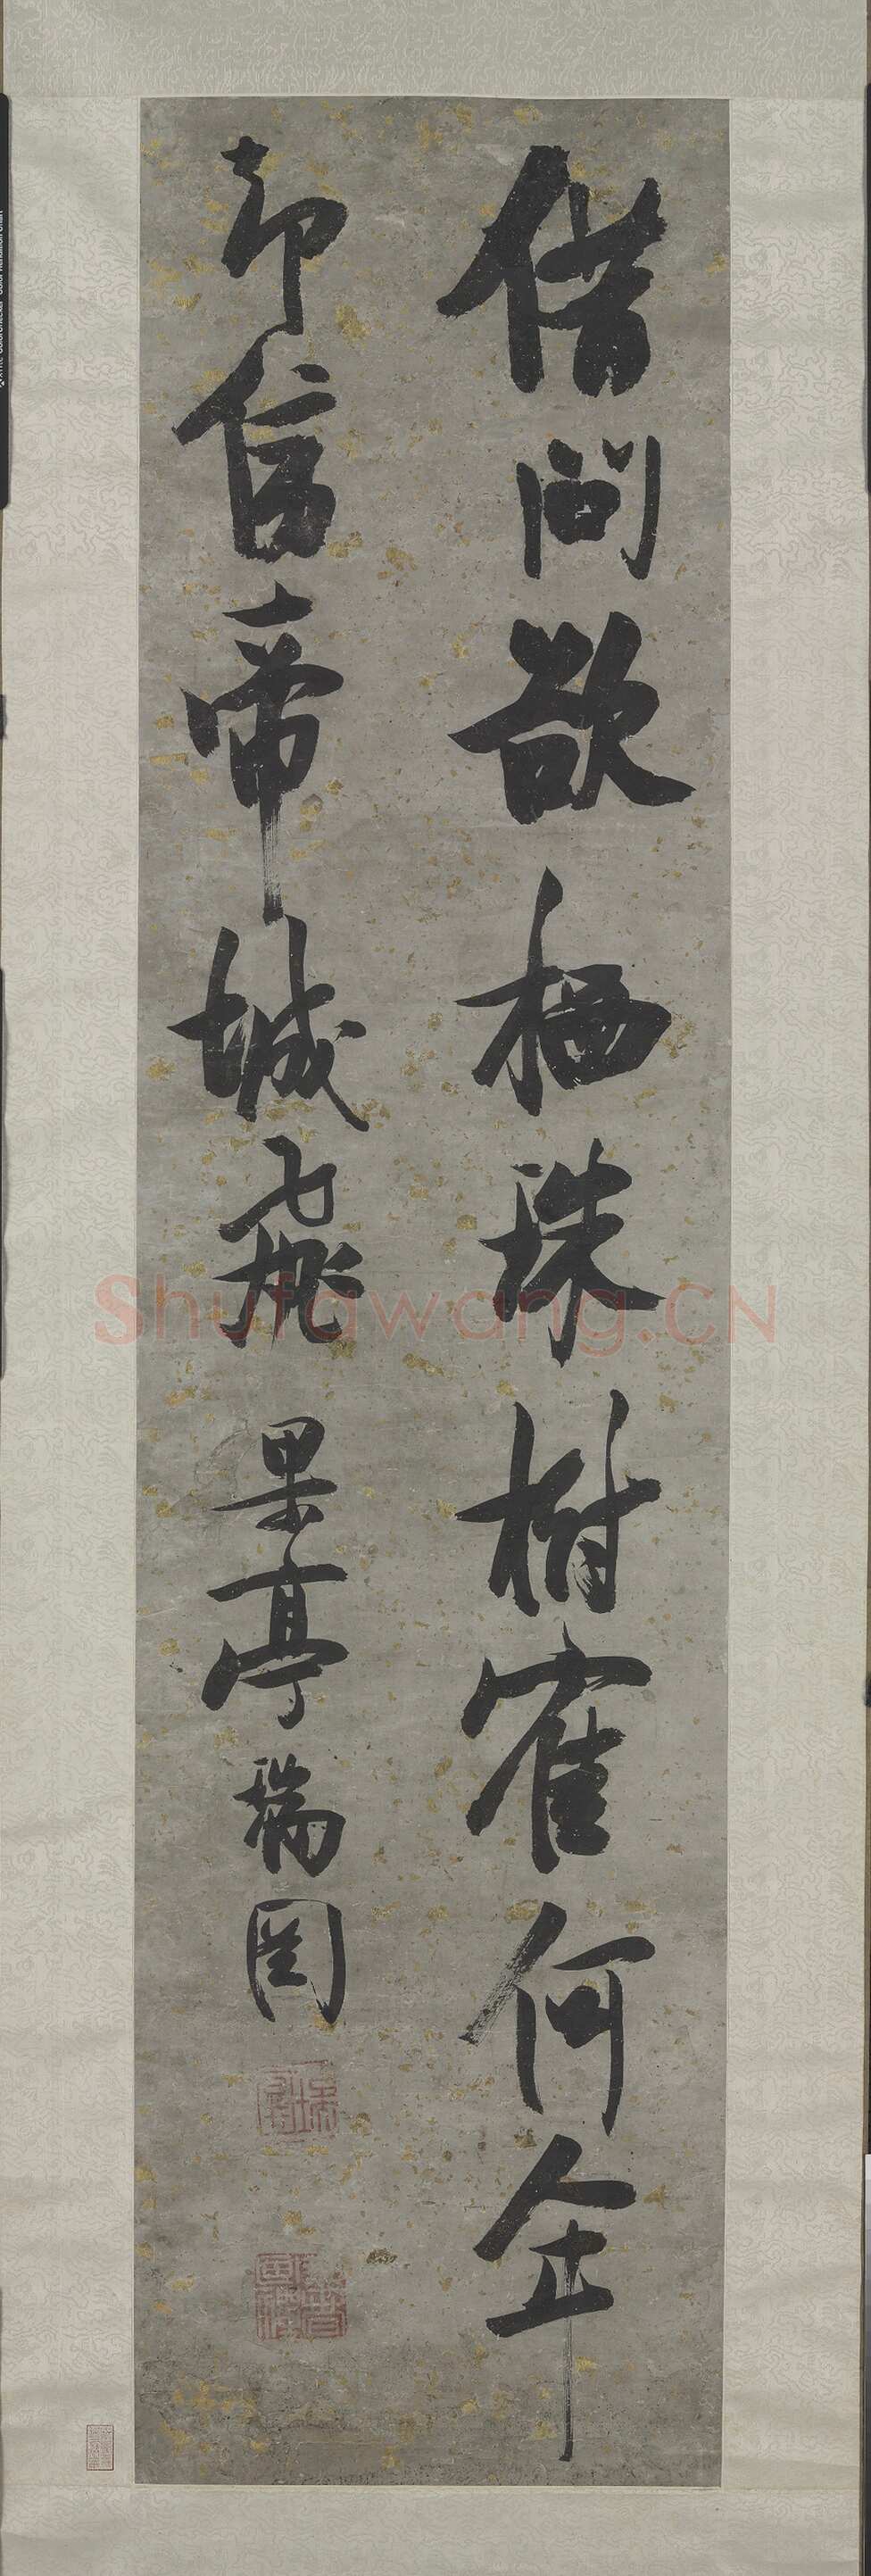 借问欲栖珠树寉何年
却信帝城飛
果亭瑞圖
Shufawang.CN